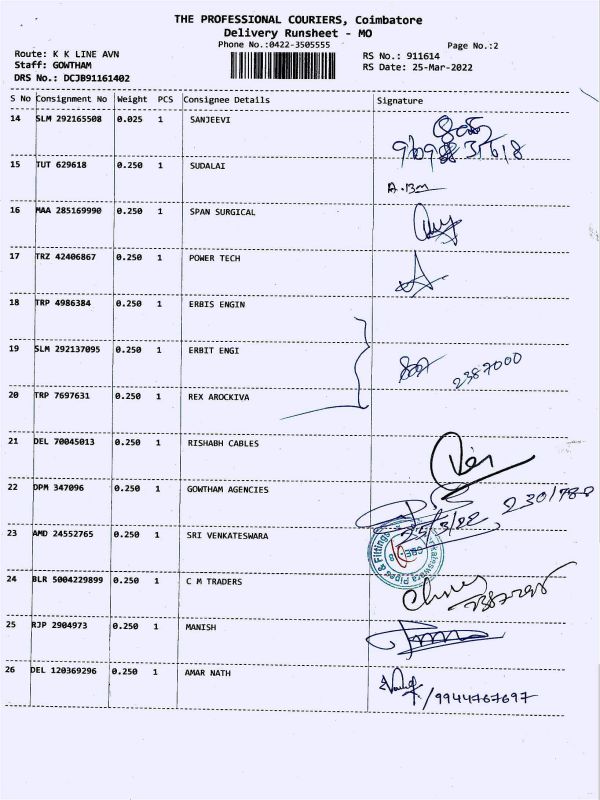 THE PROFESSIONAL COURIERS, Coimbatore
Delivery Runsheet - MO
Phone No.:0422-3505555
Page No.:2
Route: K K LINE AVN
Staff: GOWTHAM
DRS No.: DCJB91161402
RS No.: 911614
RS Date: 25-Mar-2022
S No Consignment No Weight PCS Consignee Details Signature
14 SLM 292165508 0.025 1 SANJEEVI
15 TUT 629618 0.250 1 SUDALAI
16 MAA 285169990 0.250 1 SPAN SURGICAL
17 TRZ 42406867 0.250 1 POWER TECH
18 TRP 4986384 0.250 1 ERBIS ENGIN
19 SLM 292137095 0.250 1 ERBIT ENGI
2387000
20 TRP 7697631 0.250 1 REX AROCKIVA
21 DEL 70045013 0.250 1 RISHABH CABLES
22 DPM 347096 0.250 1 GOWTHAM AGENCIES
25/3/22
23 AMD 24552765 0.250 1 SRI VENKATESWARA
Pipes & Fittings
24 BLR 5004229899 0.250 1 C M TRADERS
25 RJP 2904973 0.250 1 MANISH
26 DEL 120369296 0.250 1 AMAR NATH
/9944767697